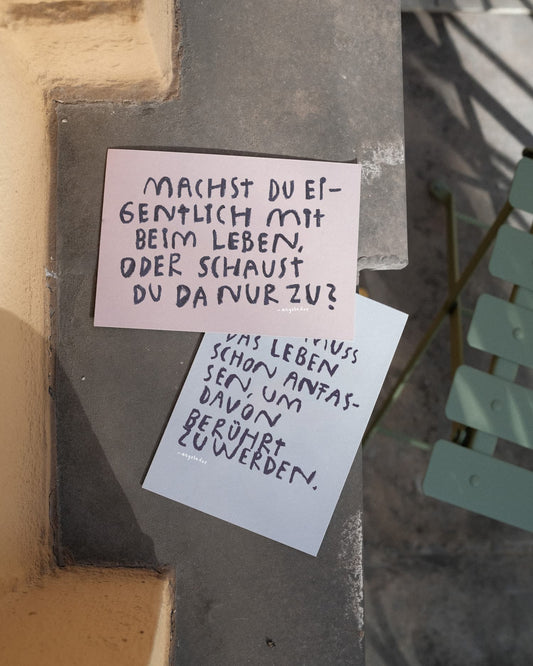 MACHST DU EI-
GENTLICH MIT
BEIM LEBEN,
ODER SCHAUST
DU DA NUR ZU?
- angela doe
MUSS
DAS LEBEN
SCHON ANFAS-
SEN, UM
DAVON
BERÜHRT
ZU WERDEN.
- angela doe